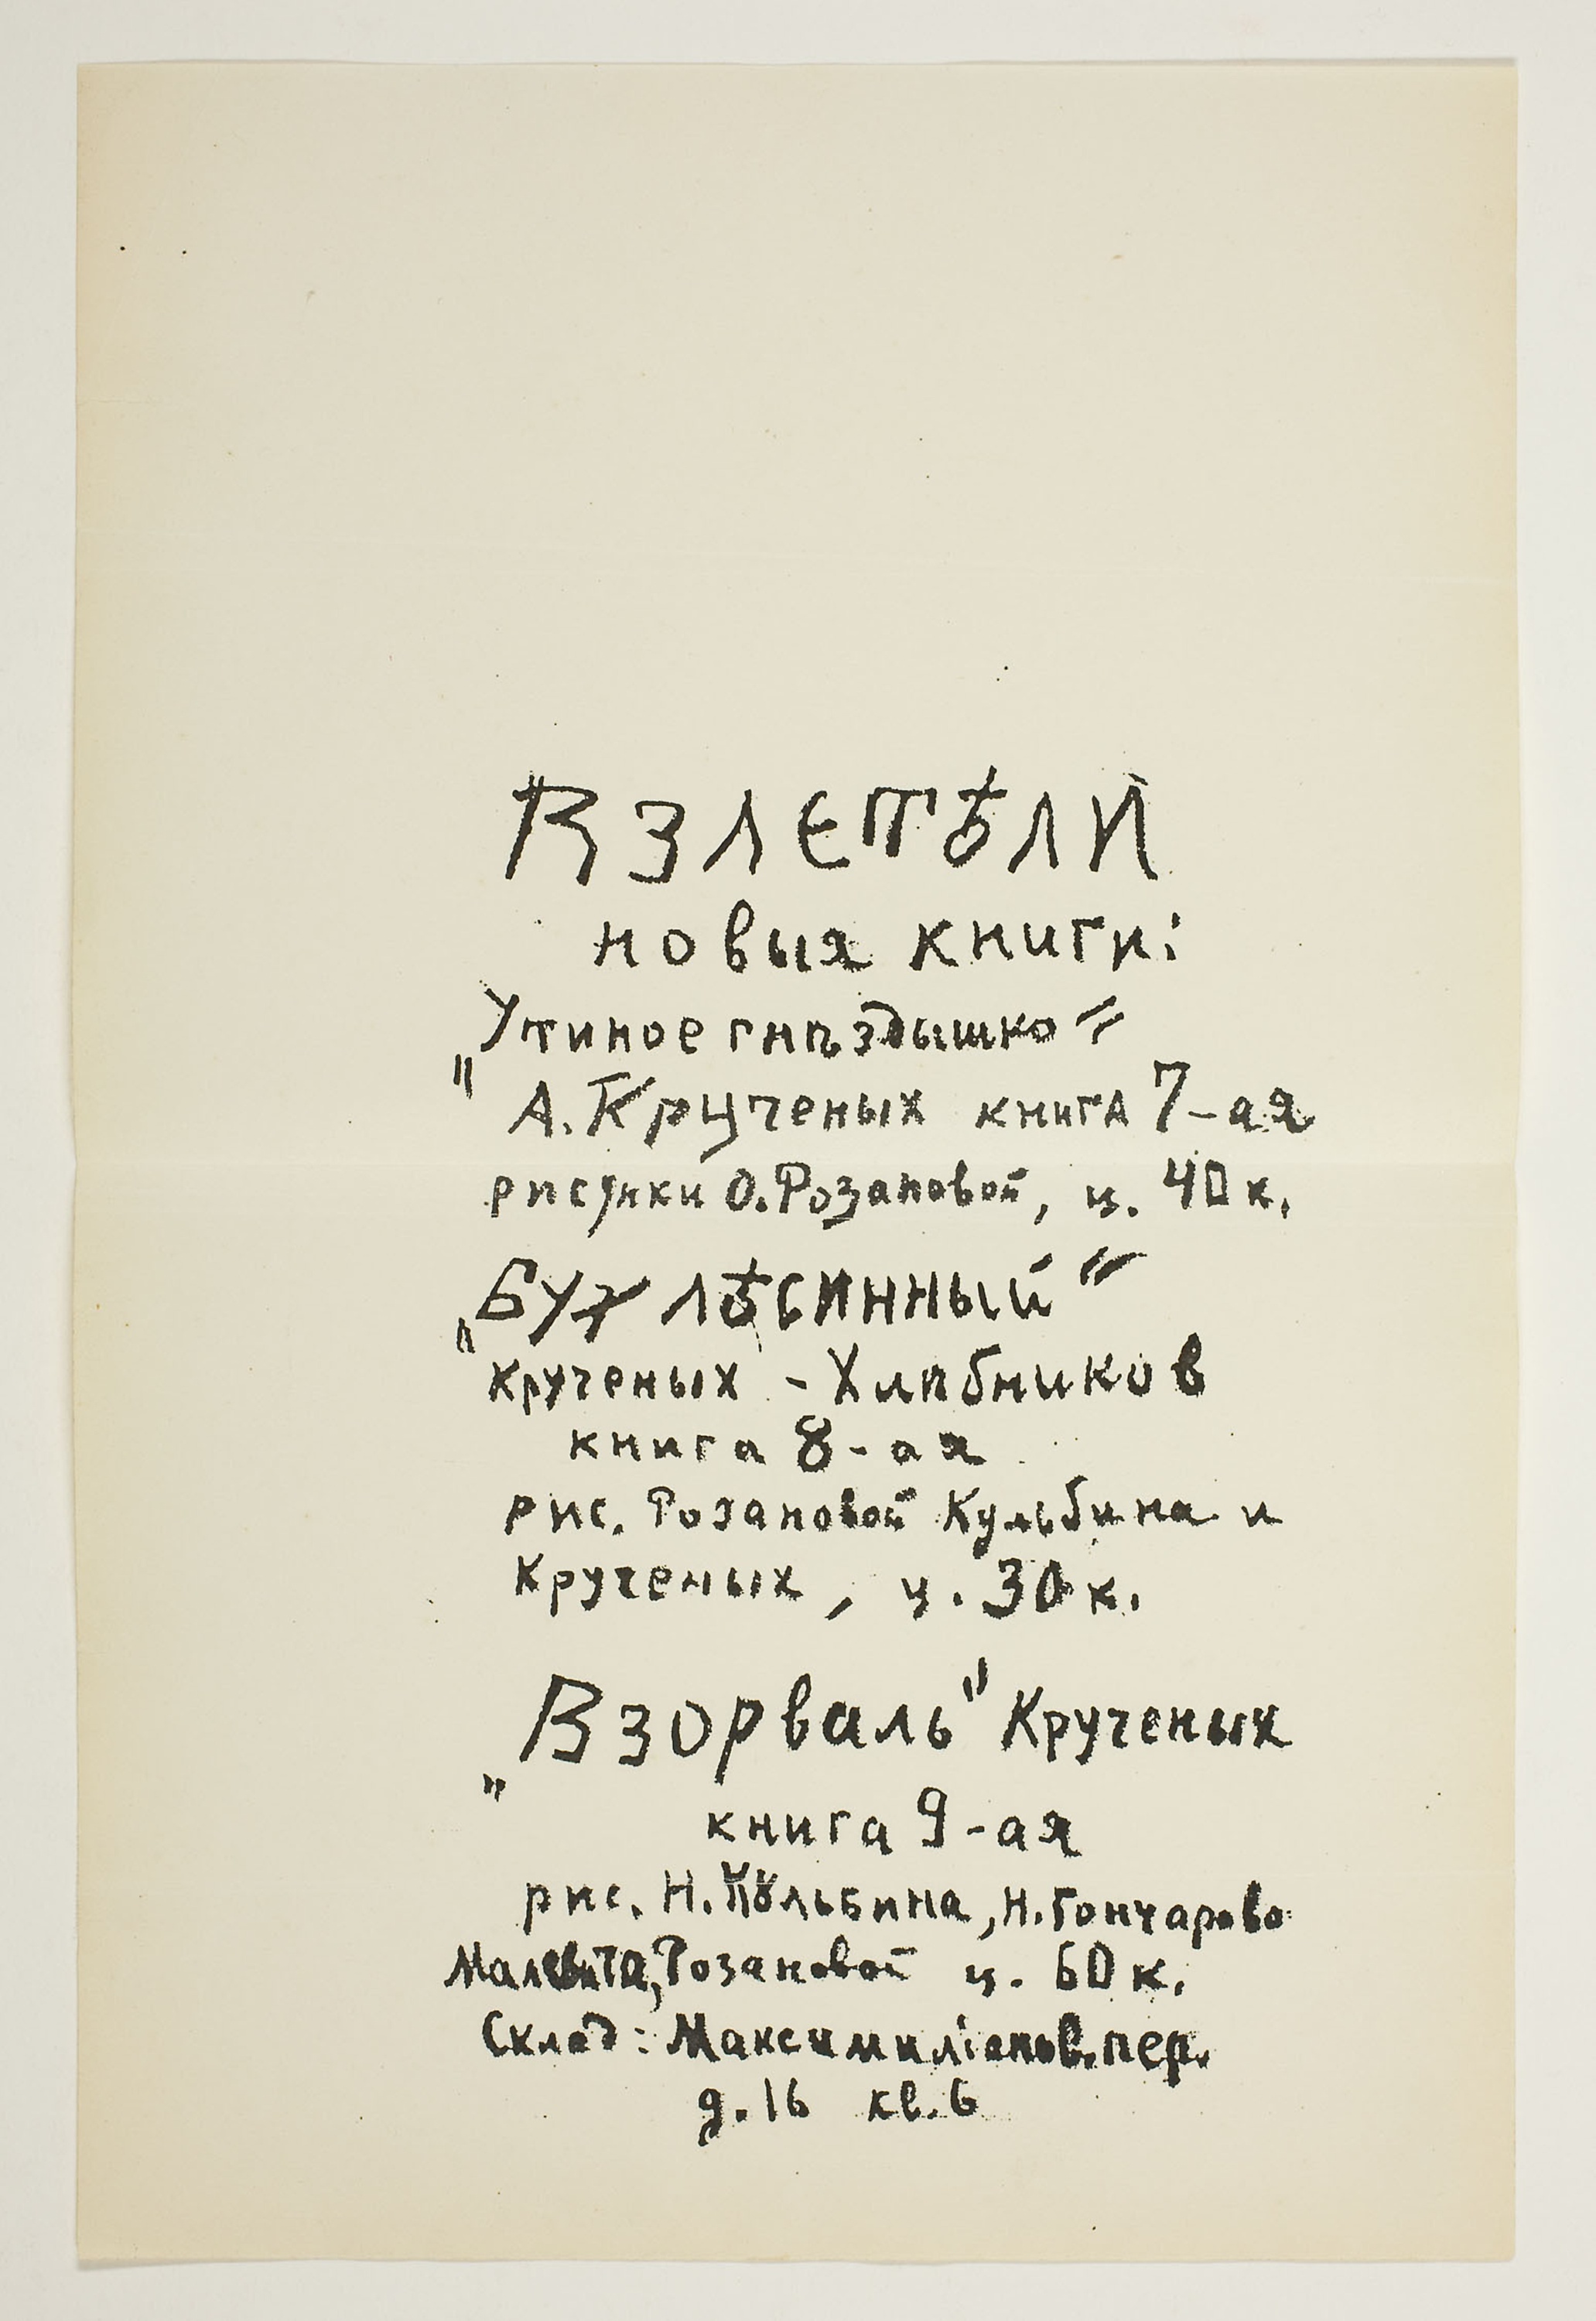 ВЗЛЕТѢЛИ
новыя книги:
„Утиное гнѣздышко“
А. Крученых книга 7-ая
рисунки О. Розановой, ц. 40 к.
„Бух лѣсинный“
крученых - Хлѣбников
книга 8-ая
рис. Розановой Кульбина и
Крученых, ц. 30 к.
„Взорваль“ Крученых
книга 9-ая
рис. Н. Кульбина, Н. Гончарово
Малевича, Розановой ц. 60 к.
Склад: Максимиліанов. пер.
д. 16 кв. 6